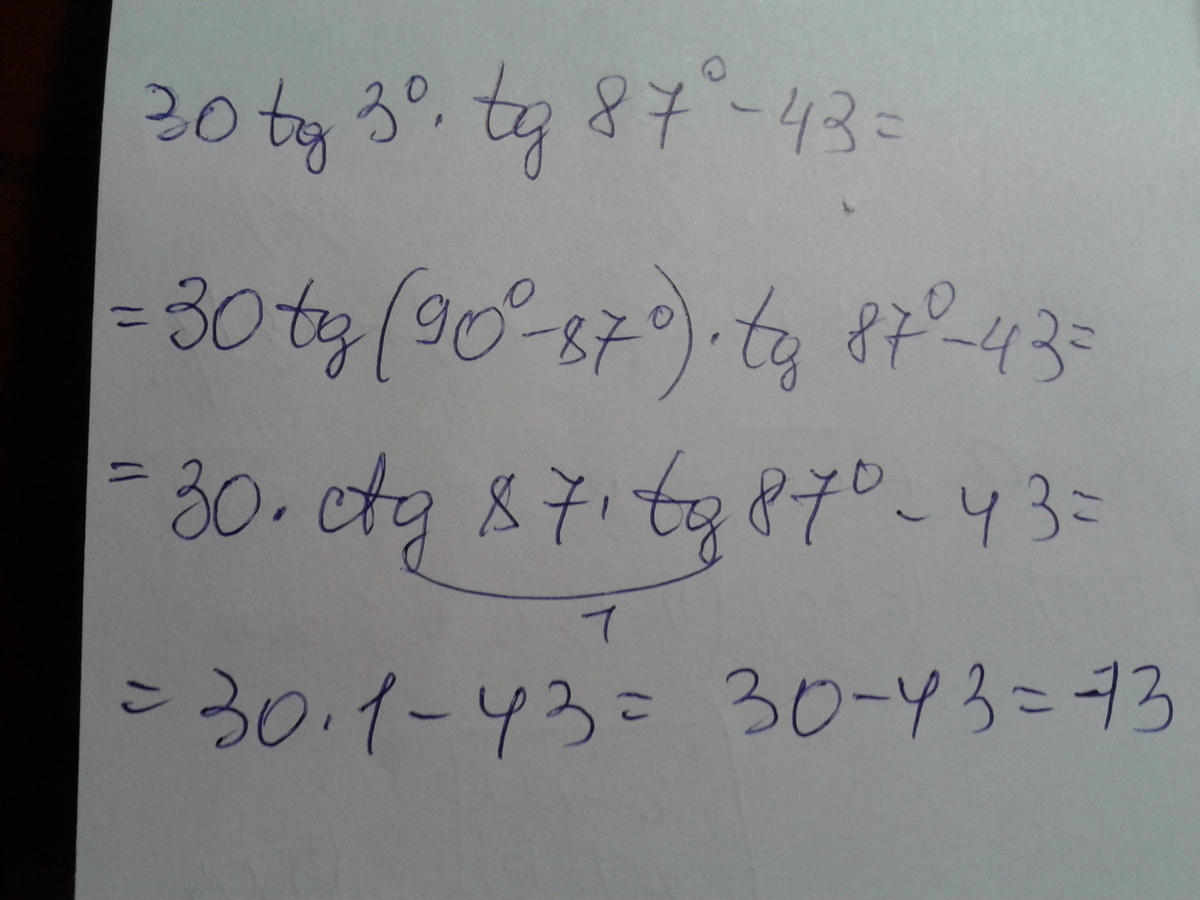 30 tg 3° · tg 87° - 43 =
= 30 tg (90° - 87°) · tg 87° - 43 =
= 30 · ctg 87 · tg 87° - 43 =
1
= 30 · 1 - 43 = 30 - 43 = -13